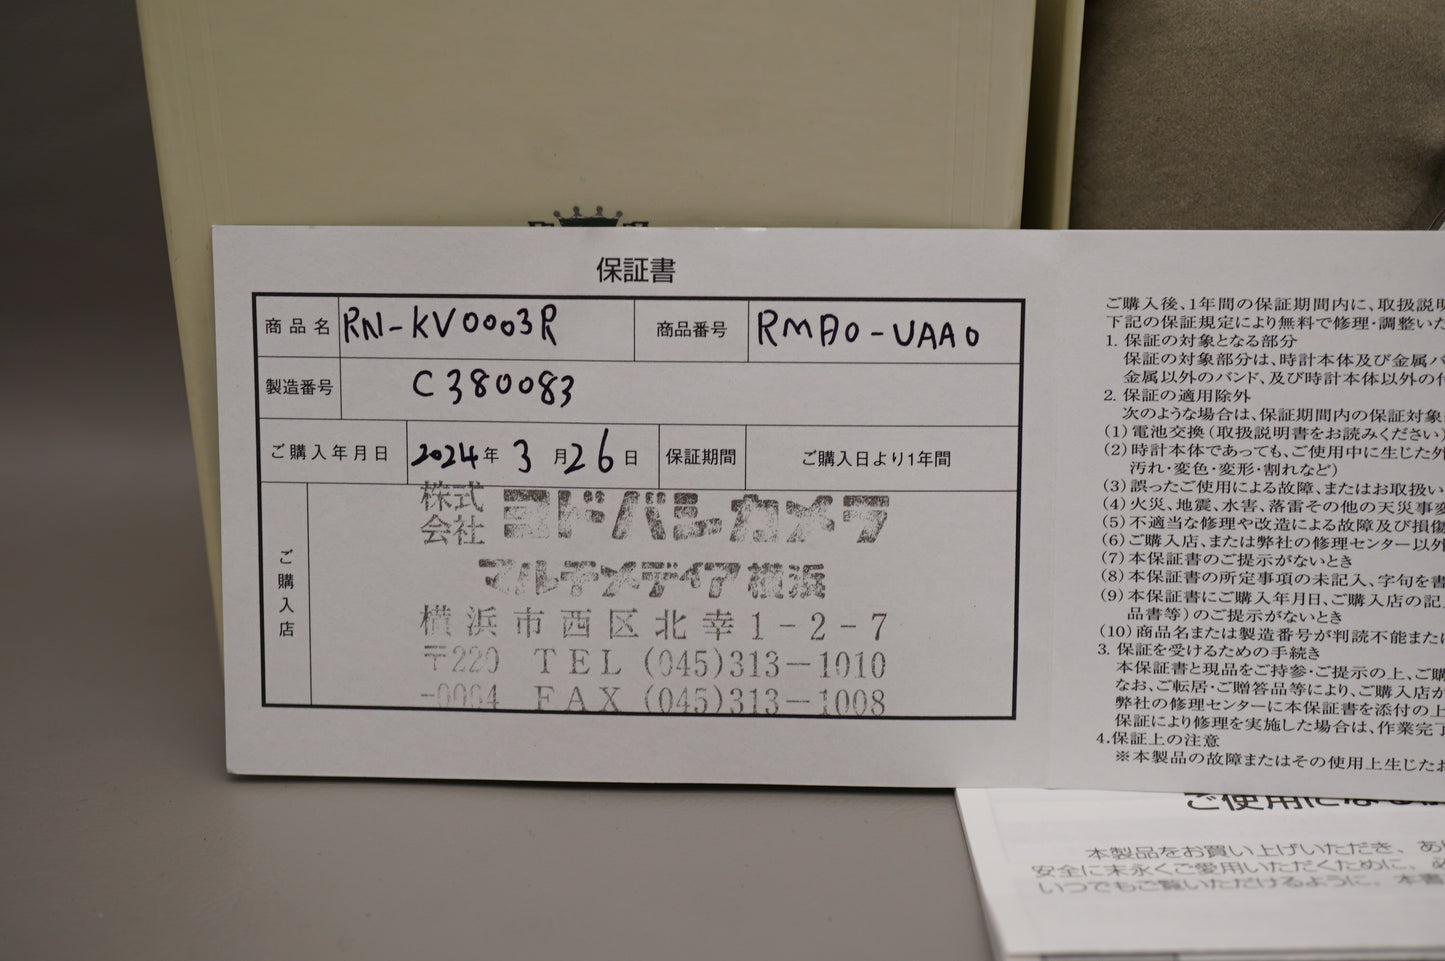 保証書
商品名 RN-KV0003R 商品番号 RMA0-UAA0
製造番号 C380083
ご購入年月日 2024年 3月26日 保証期間 ご購入日より1年間
ご購入店
株式会社 ヨドバシカメラ
マルチメディア横浜
横浜市西区北幸1-2-7
〒220 TEL (045)313-1010
-0004 FAX (045)313-1008
ご購入後、1年間の保証期間内に、取扱説明
下記の保証規定により無料で修理・調整いた
1. 保証の対象となる部分
保証の対象部分は、時計本体及び金属バ
金属以外のバンド、及び時計本体以外の付
2. 保証の適用除外
次のような場合は、保証期間内の保証対象
(1) 電池交換(取扱説明書をお読みください)
(2) 時計本体であっても、ご使用中に生じた外
汚れ・変色・変形・割れなど)
(3) 誤ったご使用による故障、またはお取扱い
(4) 火災、地震、水害、落雷その他の天災事変
(5) 不適当な修理や改造による故障及び損傷
(6) ご購入店、または弊社の修理センター以外
(7) 本保証書のご提示がないとき
(8) 本保証書の所定事項の未記入、字句を書
(9) 本保証書にご購入年月日、ご購入店の記
品書等)のご提示がないとき
(10) 商品名または製造番号が判読不能または
3. 保証を受けるための手続き
本保証書と現品をご持参・ご提示の上、ご購
なお、ご転居・ご贈答品等により、ご購入店が
弊社の修理センターに本保証書を添付の上
保証により修理を実施した場合は、作業完了
4.保証上の注意
※本製品の故障またはその使用上生じたお
ご使用になる
本製品をお買い上げいただき、あ
安全に末永くご愛用いただくために、必
いつでもご覧いただけるように、本書